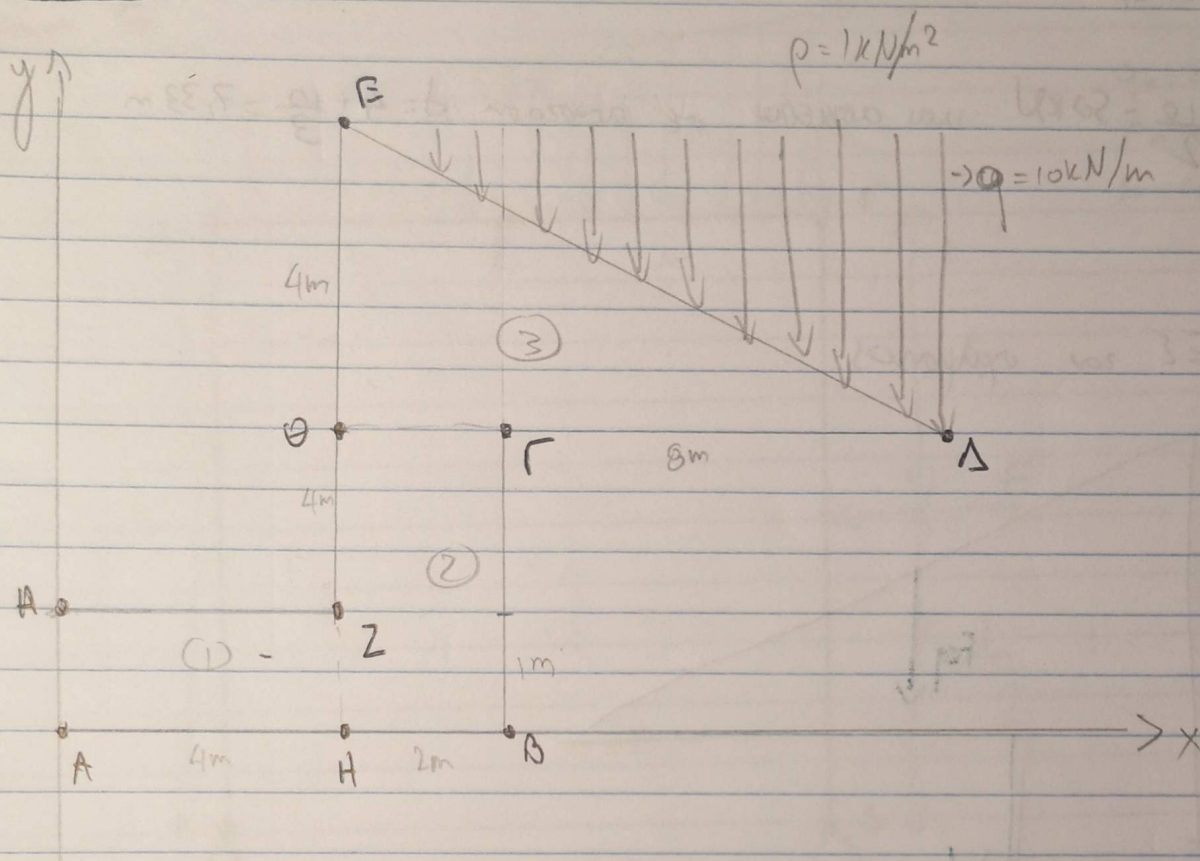 ρ = 1kN/m²
y
E
→ q = 10kN/m
4m
③
Θ
Γ
8m
Δ
4m
②
A
Z
①
1m
A
4m
H
2m
B
x